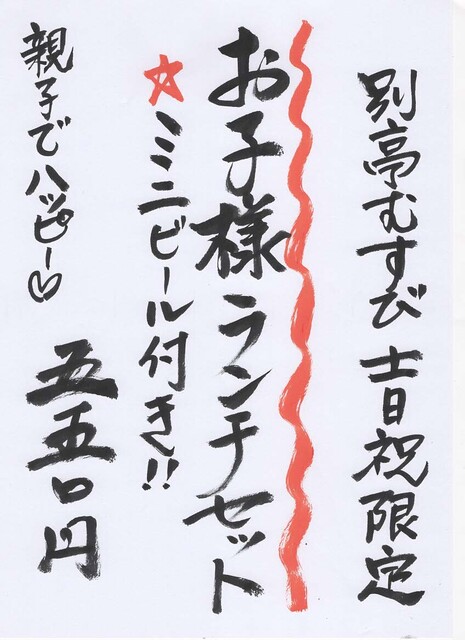 別亭むすび 土日祝限定
お子様ランチセット
☆ミニビール付き!!
親子でハッピー♡
五五〇円